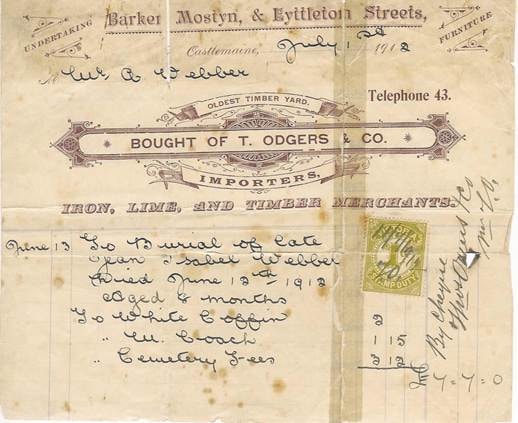 UNDERTAKING
Barker Mostyn, & Lyttleton Streets,
FURNITURE
Castlemaine, July 1st 1912
Mr A Webber
Telephone 43.
OLDEST TIMBER YARD.
BOUGHT OF T. ODGERS & CO.
IMPORTERS,
IRON, LIME, AND TIMBER MERCHANTS.
June 13 To Burial of late
Jean Isabel Webber
Died June 12th 1912
Aged 8 months
To White Coffin 2
" M. Coach 1 - 15
" Cemetery Fees 3 - 12
£ 7 - 7 - 0
STAMP DUTY
By Cheque